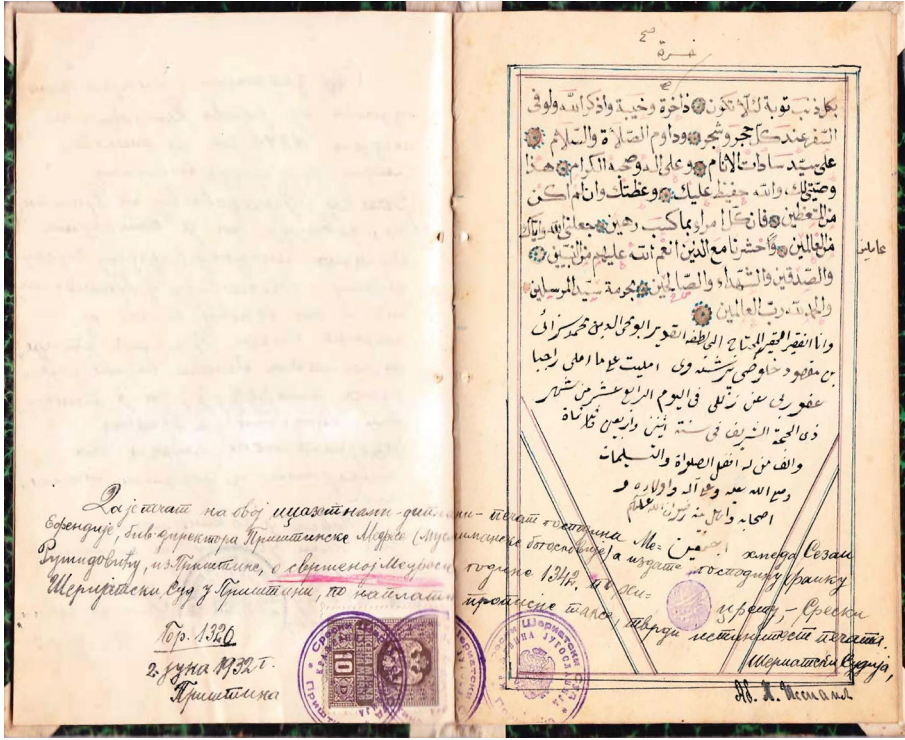 نمرة
بكل ذنب توبة لئلا تكون ذاخرة وخيبة واذكر الله ولو فى
السفر عند كل حجر وشجر وداوم الصلاة والسلام
على سيد سادات الانام وعلى اله وصحبه الكرام هذا
وصيتى لك والله حفيظ عليك وعظتك وان لم اكن
من المتعظين فان كل امرء بما كسب رهين جعلنى الله واياك
من العالمين واحشرنا مع الذين انعم الله عليهم من النبيين
عاملين
والصديقين والشهداء والصالحين بحرمة سيد المرسلين
والحمد لله رب العالمين
وانا الفقير الحقير المحتاج الى لطفه القدير محمد
بن مقصود امليت ما املى راجيا
عفو ربى عن زللى فى اليوم الرابع عشر من شهر
ذى الحجة الشريف فى سنة اثنين واربعين وثلاثماة
والف من له افضل الصلواة والتسليمات
صلى الله عليه وعلى آله واولاده و
اصحابه
اجمعين
Да је печат на овој иџазетнами-дипломи - печат господина Ме- хмеда Сезаи
Ефендије, бив. директора Приштинске Медресе (Муслиманске богословије) а издате господину Фаику
Рушидовићу, из Приштине, о свршеној Медреси године 1342, по ори- - Срески
Шериатски Суд у Приштини, по наплати прописне таксе тврди истинитост печата.
Бр. 1320
2. јуна 1932 г.
Приштина
Шериатски Судија,
10